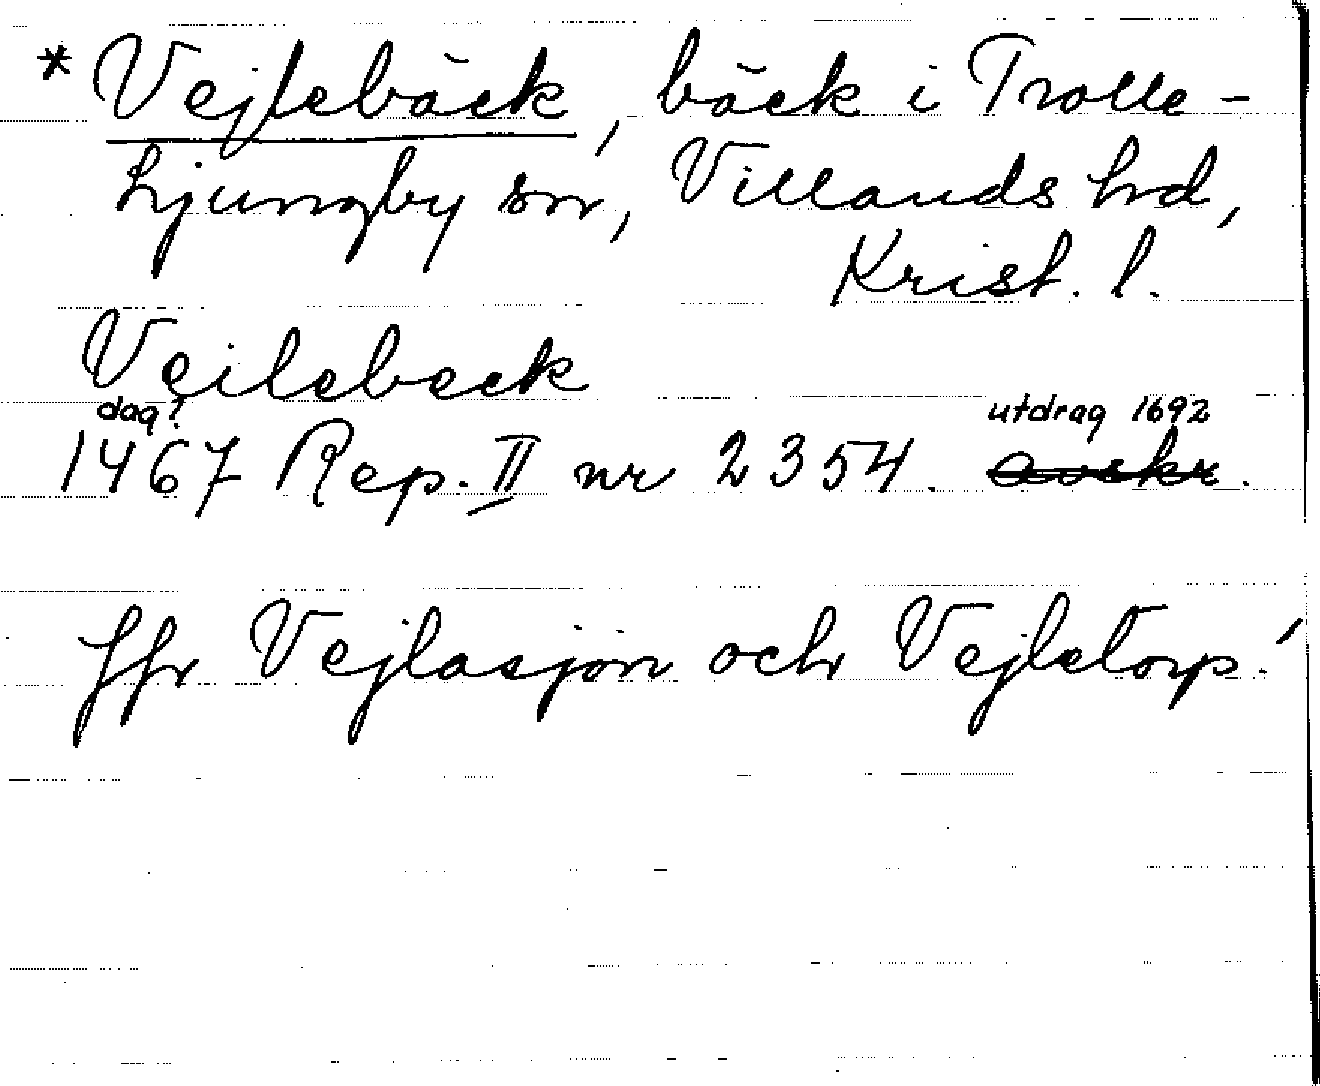 * Vejlebäck, bäck i Trolle-
Ljungby sn, Villands hd,
Krist. l.
Veilebeck
dag? utdrag 1692
1467 Rep. II nr 2354. avskr.
Jfr Vejlasjön och Vejletorp!